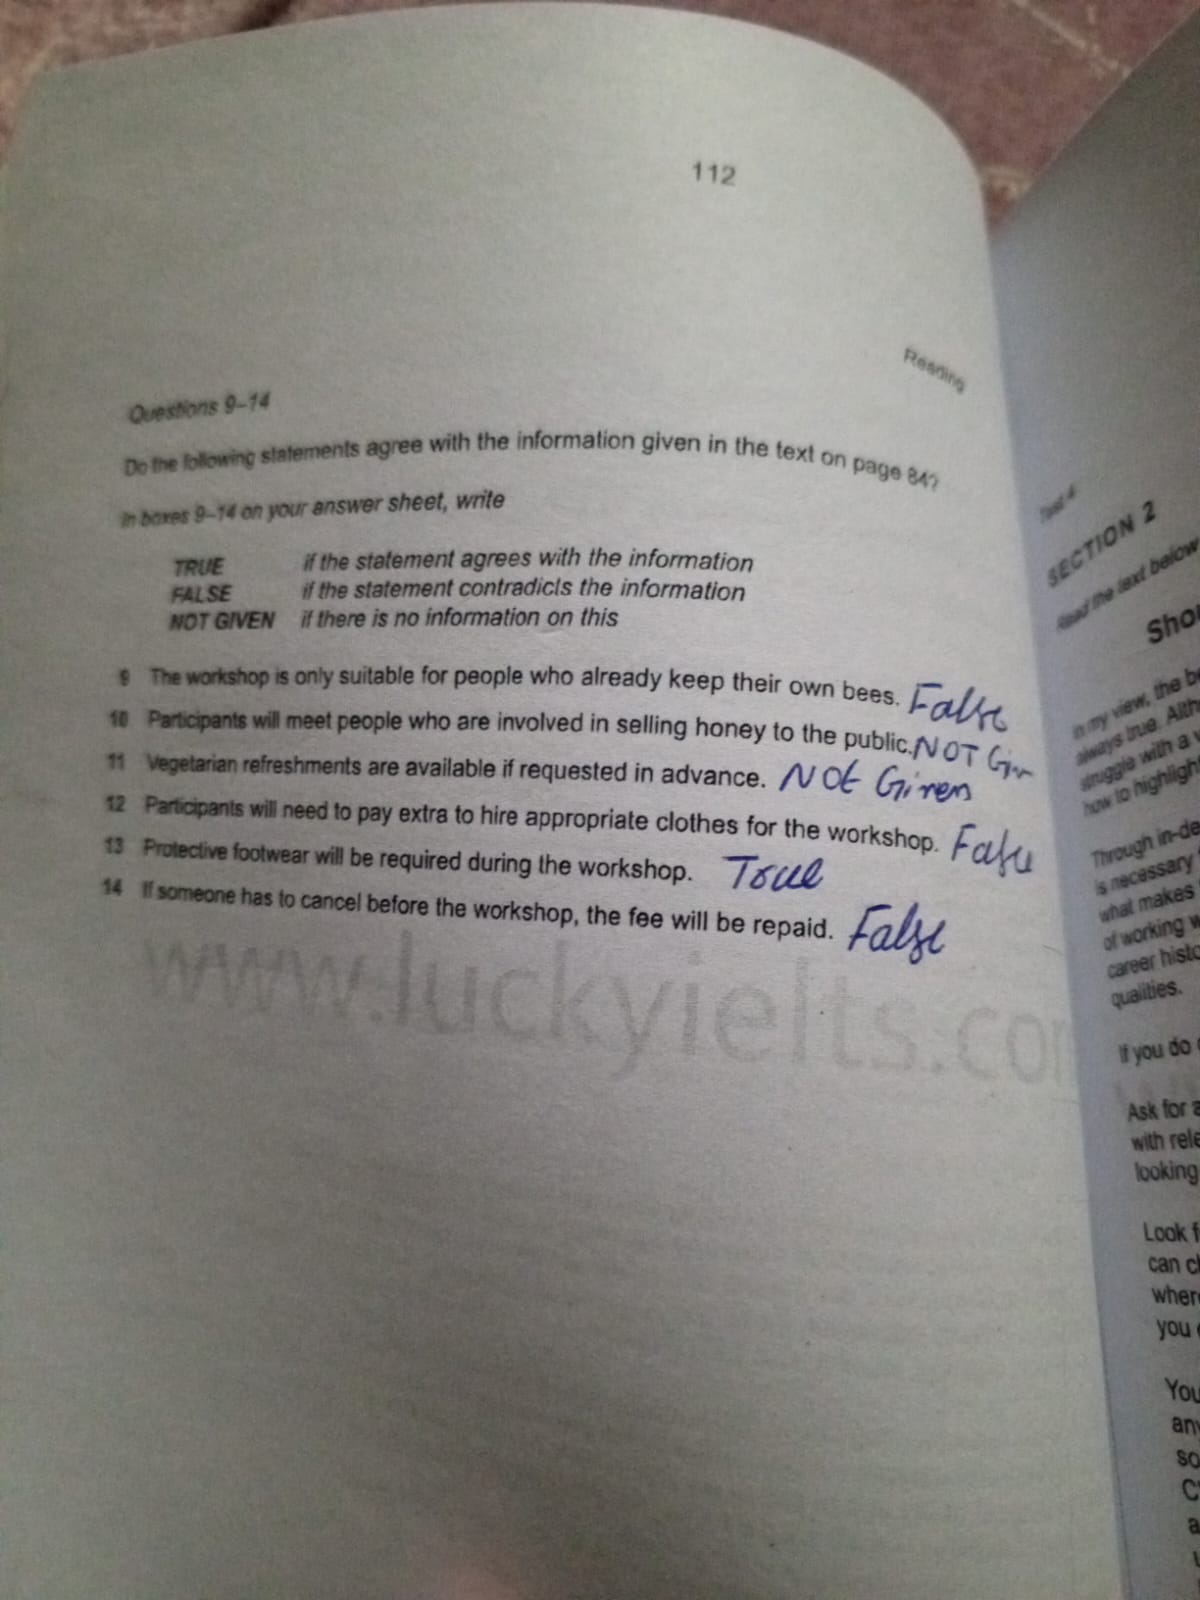 112
Reading
Questions 9–14
Do the following statements agree with the information given in the text on page 84?
In boxes 9–14 on your answer sheet, write
TRUE if the statement agrees with the information
FALSE if the statement contradicts the information
NOT GIVEN if there is no information on this
9 The workshop is only suitable for people who already keep their own bees. False
10 Participants will meet people who are involved in selling honey to the public. NOT Giv
11 Vegetarian refreshments are available if requested in advance. Not Given
12 Participants will need to pay extra to hire appropriate clothes for the workshop. False
13 Protective footwear will be required during the workshop. True
14 If someone has to cancel before the workshop, the fee will be repaid. False
www.luckyielts.com
Test 4
SECTION 2
Read the text below
Shou
In my view, the be
always true. Alth
struggle with a v
how to highlight
Through in-de
is necessary
what makes
of working w
career histo
qualities.
If you do
Ask for a
with rele
looking
Look f
can cl
where
you
You
any
so
C
a